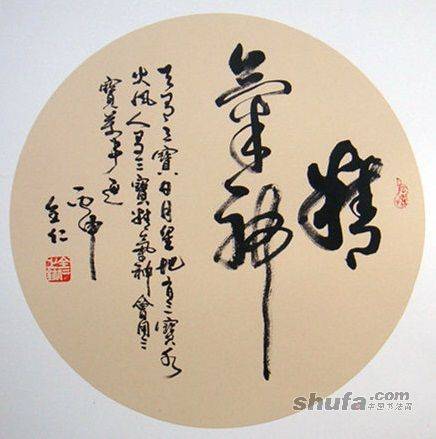 精
氣神
天有三寶日月星地有三寶水
火風人有三寶精氣神會用三
寶萬
丙申
全仁
shufa.com
中国书法网